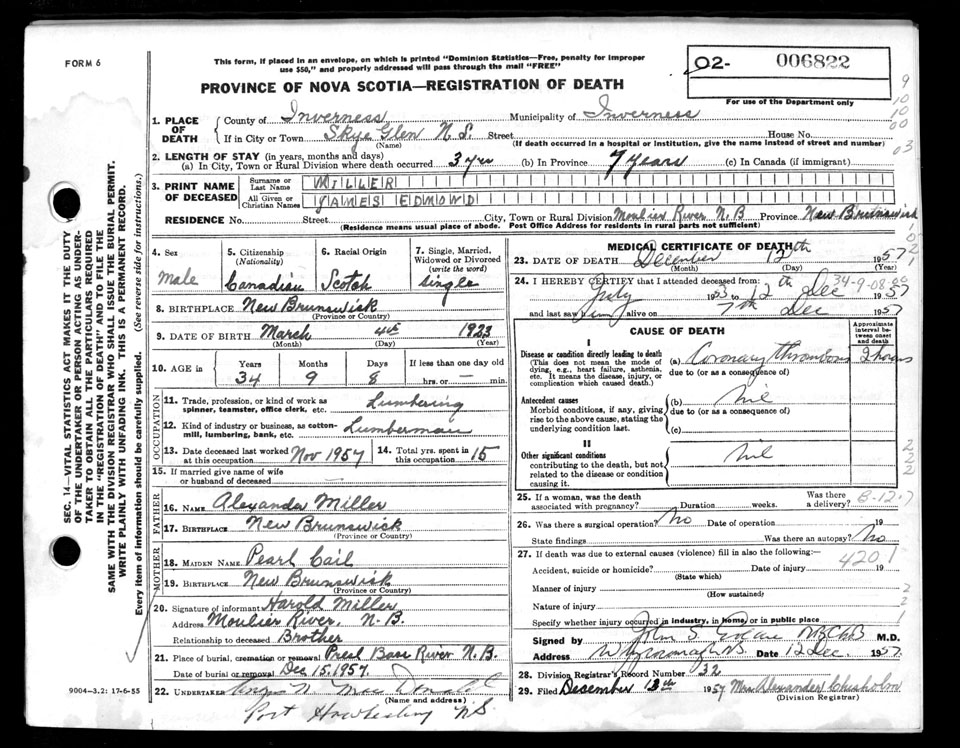 FORM 6
This form, if placed in an envelope, on which is printed "Dominion Statistics—Free, penalty for improper
use $50," and properly addressed will pass through the mail "FREE"
O2- 006822
For use of the Department only
PROVINCE OF NOVA SCOTIA—REGISTRATION OF DEATH
1. PLACE OF DEATH
County of Inverness Municipality of Inverness
If in City or Town Skye Glen N.S. Street House No.
(Name) (If death occurred in a hospital or institution, give the name instead of street and number)
2. LENGTH OF STAY (in years, months and days)
(a) In City, Town or Rural Division where death occurred 3 yrs (b) In Province 7 years (c) In Canada (if immigrant)
3. PRINT NAME OF DECEASED
Surname or Last Name MILLER
All Given or Christian Names JAMES EDMOND
RESIDENCE No. Street City, Town or Rural Division Moulier River N.B Province New Brunswick
(Residence means usual place of abode. Post Office Address for residents in rural parts not sufficient)
4. Sex Male
5. Citizenship (Nationality) Canadian
6. Racial Origin Scotch
7. Single, Married, Widowed or Divorced (write the word) single
8. BIRTHPLACE New Brunswick
(Province or Country)
9. DATE OF BIRTH March 4th 1923
(Month) (Day) (Year)
10. AGE in Years 34 Months 9 Days 8 If less than one day old hrs. or — min.
OCCUPATION
11. Trade, profession, or kind of work as spinner, teamster, office clerk, etc. Lumbering
12. Kind of industry or business, as cotton-mill, lumbering, bank, etc. Lumberman
13. Date deceased last worked at this occupation Nov 1957 14. Total yrs. spent in this occupation 15
15. If married give name of wife or husband of deceased —
FATHER
16. NAME Alexander Miller
17. BIRTHPLACE New Brunswick
(Province or Country)
MOTHER
18. MAIDEN NAME Pearl Cail
19. BIRTHPLACE New Brunswick
(Province or Country)
20. Signature of informant Harold Miller
Address Moulier River, N.B.
Relationship to deceased Brother
21. Place of burial, cremation or removal Presb Bass River N.B.
Date of burial or removal Dec 15, 1957.
22. UNDERTAKER MacDonald
(Name and address)
Port Hawkesbury N.S.
9004—3.2: 17-6-55
MEDICAL CERTIFICATE OF DEATH
23. DATE OF DEATH December 12th 1957
(Month) (Day) (Year)
24. I HEREBY CERTIFY that I attended deceased from:
July 1953 to 12th Dec 1957
34-9-08-00
and last saw him alive on 7th Dec 1957
CAUSE OF DEATH
Approximate interval between onset and death
I
Disease or condition directly leading to death (a) Coronary thrombosis 2 hours
(This does not mean the mode of dying, e.g., heart failure, asthenia, etc. It means the disease, injury, or complication which caused death.)
due to (or as a consequence of)
Antecedent causes (b) nil
Morbid conditions, if any, giving rise to the above cause, stating the underlying condition last.
due to (or as a consequence of)
(c)
II
Other significant conditions nil
contributing to the death, but not related to the disease or condition causing it.
25. If a woman, was the death associated with pregnancy? Duration weeks. Was there a delivery?
8-12-7
26. Was there a surgical operation? No Date of operation 19
State findings Was there an autopsy? No
27. If death was due to external causes (violence) fill in also the following:—
420.1
Accident, suicide or homicide? Date of injury 19
(State which)
Manner of injury
(How sustained)
Nature of injury
Specify whether injury occurred in industry, in home, or in public place
Signed by John S. M.B.Ch.B M.D.
Address Whycocomagh N.S. Date 12 Dec. 1957.
28. Division Registrar's Record Number 32
29. Filed Desember 13th 1957 Mrs Alexander Chisholm
(Division Registrar)
SEC. 14—VITAL STATISTICS ACT MAKES IT THE DUTY
OF THE UNDERTAKER OR PERSON ACTING AS UNDER-
TAKER TO OBTAIN ALL THE PARTICULARS REQUIRED
IN THE "REGISTRATION OF DEATH" AND TO FILE THE
SAME WITH THE DIVISION REGISTRAR WHO SHALL ISSUE THE BURIAL PERMIT.
WRITE PLAINLY WITH UNFADING INK. THIS IS A PERMANENT RECORD.
Every item of information should be carefully supplied. (See reverse side for instructions.)